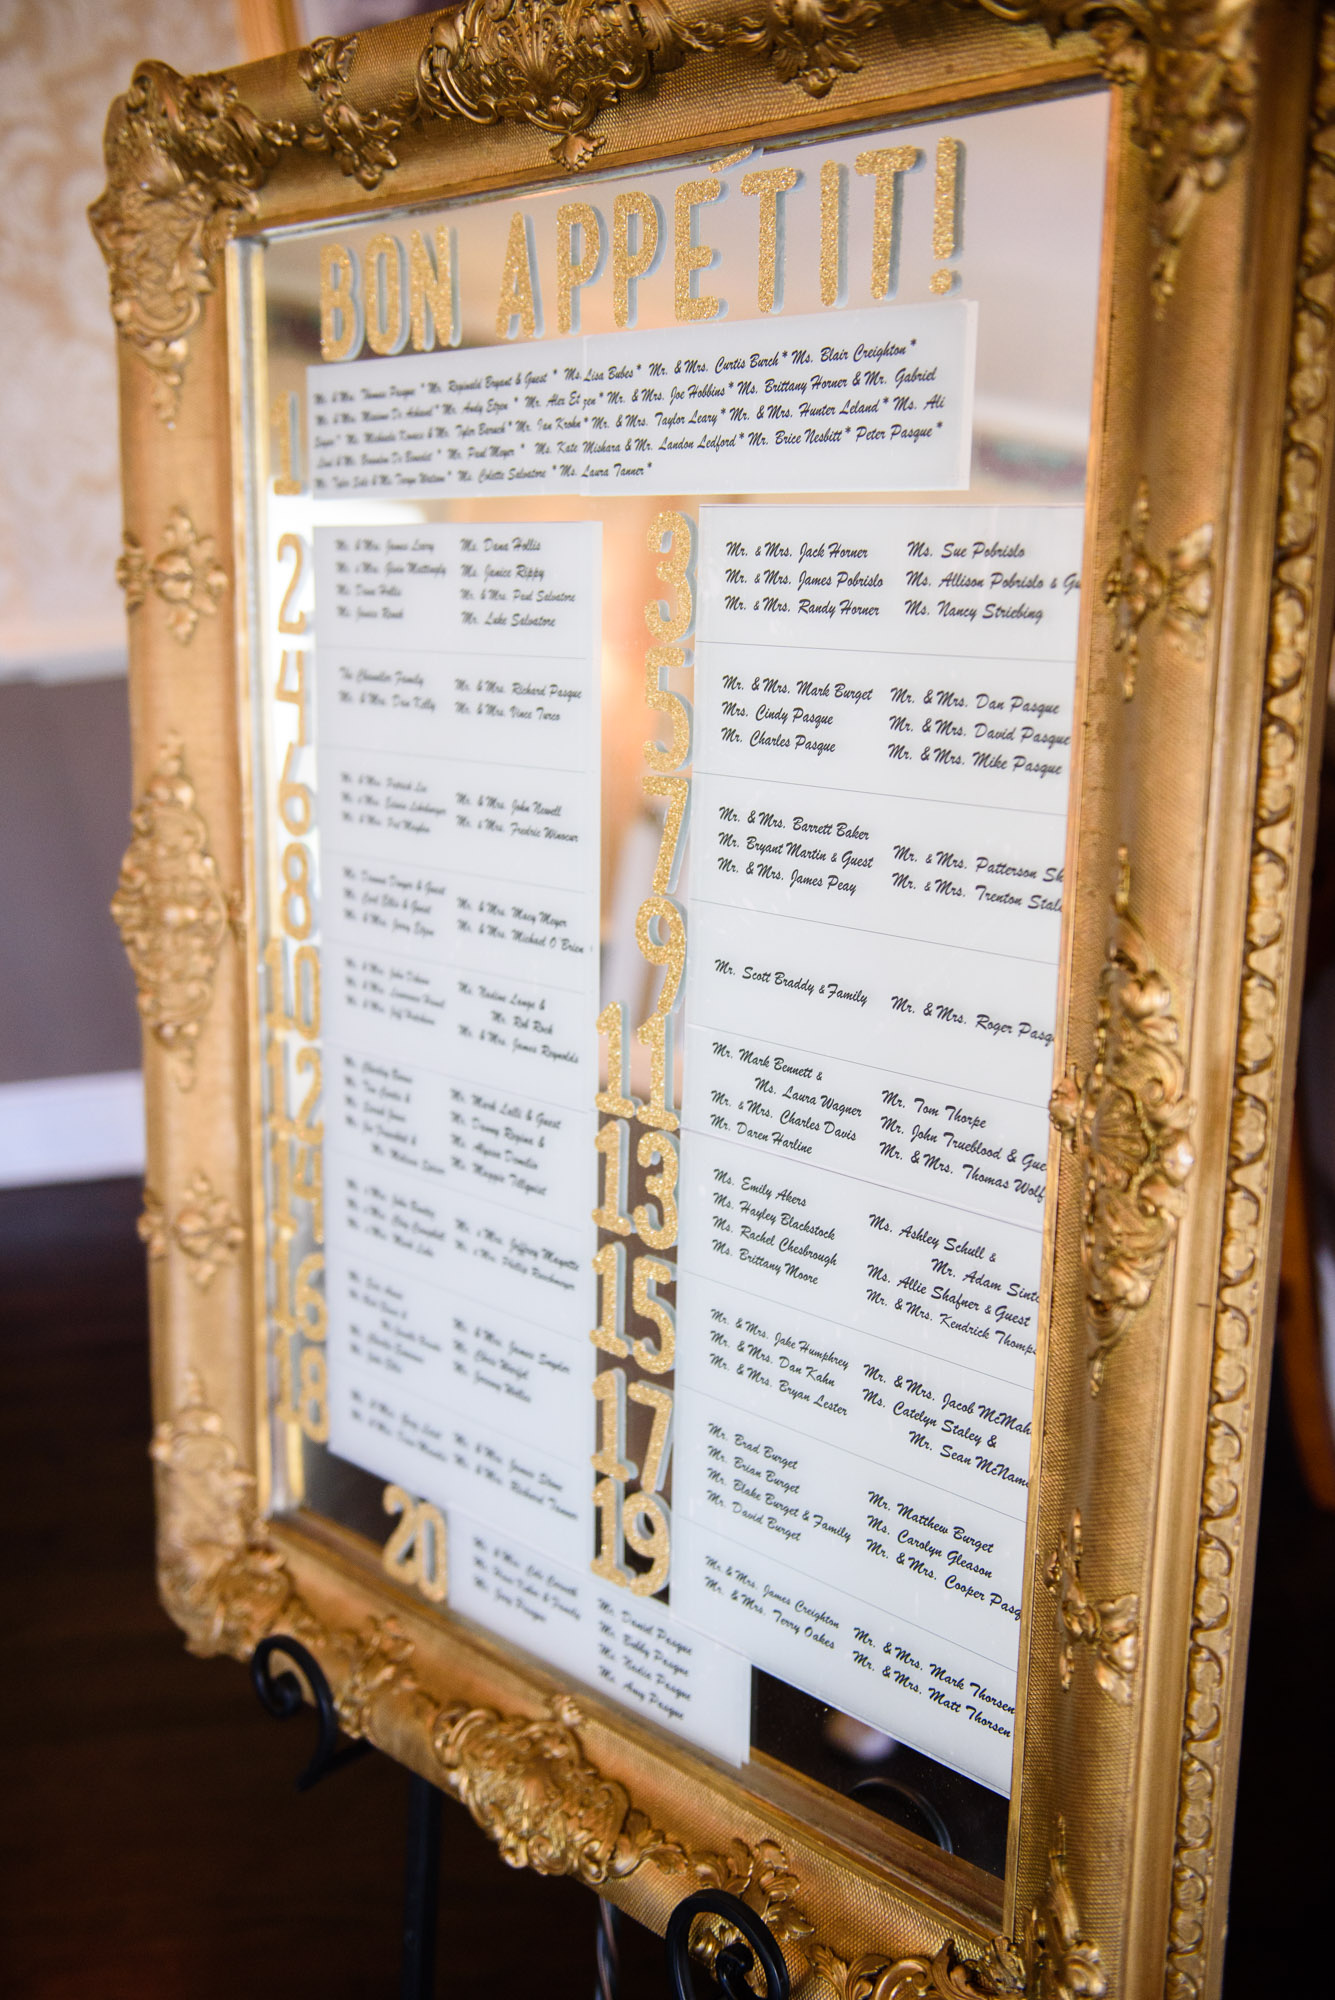 BON APPÉTIT!
1
Mr. & Mrs. Thomas Pasque * Mr. Reginald Bryant & Guest * Ms. Lisa Bubes * Mr. & Mrs. Curtis Burch * Ms. Blair Creighton *
Mr. & Mrs. * Mr. Andy Etzen * Mr. Alex Etzen * Mr. & Mrs. Joe Hobbins * Ms. Brittany Horner & Mr. Gabriel
Ms. Michaela & Mr. Tyler * Mr. Ian Krohn * Mr. & Mrs. Taylor Leary * Mr. & Mrs. Hunter Leland * Ms. Ali
& Mr. Brandon De Benedet * Mr. Paul Meyer * Ms. Kate Mishara & Mr. Landon Ledford * Mr. Brice Nesbitt * Peter Pasque *
Mr. Tyler & Ms. Taryn Watson * Ms. Colette Salvatore * Ms. Laura Tanner *
2
Mr. & Mrs. James Leary
Mr. & Mrs. Mattingly
Ms. Dana Hollis
Ms. Janice
Ms. Dana Hollis
Ms. Janice Rippy
Mr. & Mrs. Paul Salvatore
Mr. Luke Salvatore
3
Mr. & Mrs. Jack Horner
Mr. & Mrs. James Pobrislo
Mr. & Mrs. Randy Horner
Ms. Sue Pobrislo
Ms. Allison Pobrislo & Gu
Ms. Nancy Striebing
4
The Chandler Family
Mr. & Mrs. Dan Kelly
Mr. & Mrs. Richard Pasque
Mr. & Mrs. Vince Turco
5
Mr. & Mrs. Mark Burget
Mrs. Cindy Pasque
Mr. Charles Pasque
Mr. & Mrs. Dan Pasque
Mr. & Mrs. David Pasque
Mr. & Mrs. Mike Pasque
6
Mr. & Mrs. Patrick
Mr. & Mrs. Edwin
Mr. & Mrs. Pat
Mr. & Mrs. John Newell
Mr. & Mrs. Fredric Winocur
7
Mr. & Mrs. Barrett Baker
Mr. Bryant Martin & Guest
Mr. & Mrs. James Peay
Mr. & Mrs. Patterson Sh
Mr. & Mrs. Trenton Stal
8
Ms. Donna & Guest
Mr. Carl Ellis & Guest
Mr. & Mrs. Jerry Etzen
Mr. & Mrs. Macy Meyer
Mr. & Mrs. Michael O'Brien
9
Mr. Scott Braddy & Family
Mr. & Mrs. Roger Pasq
10
Mr. & Mrs. John
Mr. & Mrs. Lawrence
Mr. & Mrs. Jeff
Ms. Nadine Lange &
Mr. Rob Rock
Mr. & Mrs. James Reynolds
11
Mr. Mark Bennett &
Ms. Laura Wagner
Mr. & Mrs. Charles Davis
Mr. Daren Harline
Mr. Tom Thorpe
Mr. John Trueblood & Gue
Mr. & Mrs. Thomas Wolf
12
Mr. Charley
Mr. Tom &
Ms. Sarah Jones
Mr. Joe &
Ms. Melissa
Mr. Mark Lalli & Guest
Mr. Danny Regina &
Ms. Alyson
Ms. Maggie Tillquist
13
Ms. Emily Akers
Ms. Hayley Blackstock
Ms. Rachel Chesbrough
Ms. Brittany Moore
Ms. Ashley Schull &
Mr. Adam Sint
Ms. Allie Shafner & Guest
Mr. & Mrs. Kendrick Thomp
14
Mr. & Mrs. John
Mr. & Mrs. Campbell
Mr. & Mrs. Mark
Mr. & Mrs. Jeffrey
Mr. & Mrs. Phillip
15
Mr. & Mrs. Jake Humphrey
Mr. & Mrs. Dan Kahn
Mr. & Mrs. Bryan Lester
Mr. & Mrs. Jacob McMah
Ms. Catelyn Staley &
Mr. Sean McNam
16
Mr. & Mrs. James Snyder
Mr. Chris
Mr. Jeremy
17
Mr. Brad Burget
Mr. Brian Burget
Mr. Blake Burget & Family
Mr. David Burget
Mr. Matthew Burget
Ms. Carolyn Gleason
Mr. & Mrs. Cooper Pasq
18
Mr. & Mrs.
Mr. & Mrs.
Mr. & Mrs. James Stone
Mr. & Mrs. Richard Tanner
19
Mr. & Mrs. James Creighton
Mr. & Mrs. Terry Oakes
Mr. & Mrs. Mark Thorsen
Mr. & Mrs. Matt Thorsen
20
Mr. & Mrs.
Mr. & Family
Mr. Joey Pasque
Mr. Daniel Pasque
Mr. Bobby Pasque
Ms. Nadia Pasque
Ms. Amy Pasque